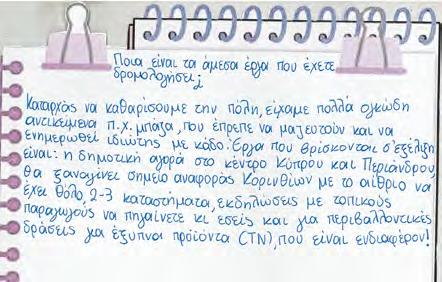 Ποια είναι τα άμεσα έργα που έχετε
δρομολογήσει;
Καταρχάς να καθαρίσουμε την πόλη, είχαμε πολλά ογκώδη
αντικείμενα π.χ. μπάζα, που έπρεπε να μαζευτούν και να
ενημερωθεί ιδιώτης με κάδο. Έργα που βρίσκονται σ'εξέλιξη
είναι: η δημοτική αγορά στο κέντρο Κύπρου και Περιάνδρου,
θα ξαναγίνει σημείο αναφοράς Κορινθίων με το αίθριο να
έχει θόλο, 2-3 καταστήματα, εκδηλώσεις με τοπικούς
παραγωγούς να πηγαίνετε κι εσείς και για περιβαλλοντικές
δράσεις για έξυπνα προϊόντα (CTN), που είναι ενδιαφέρον!